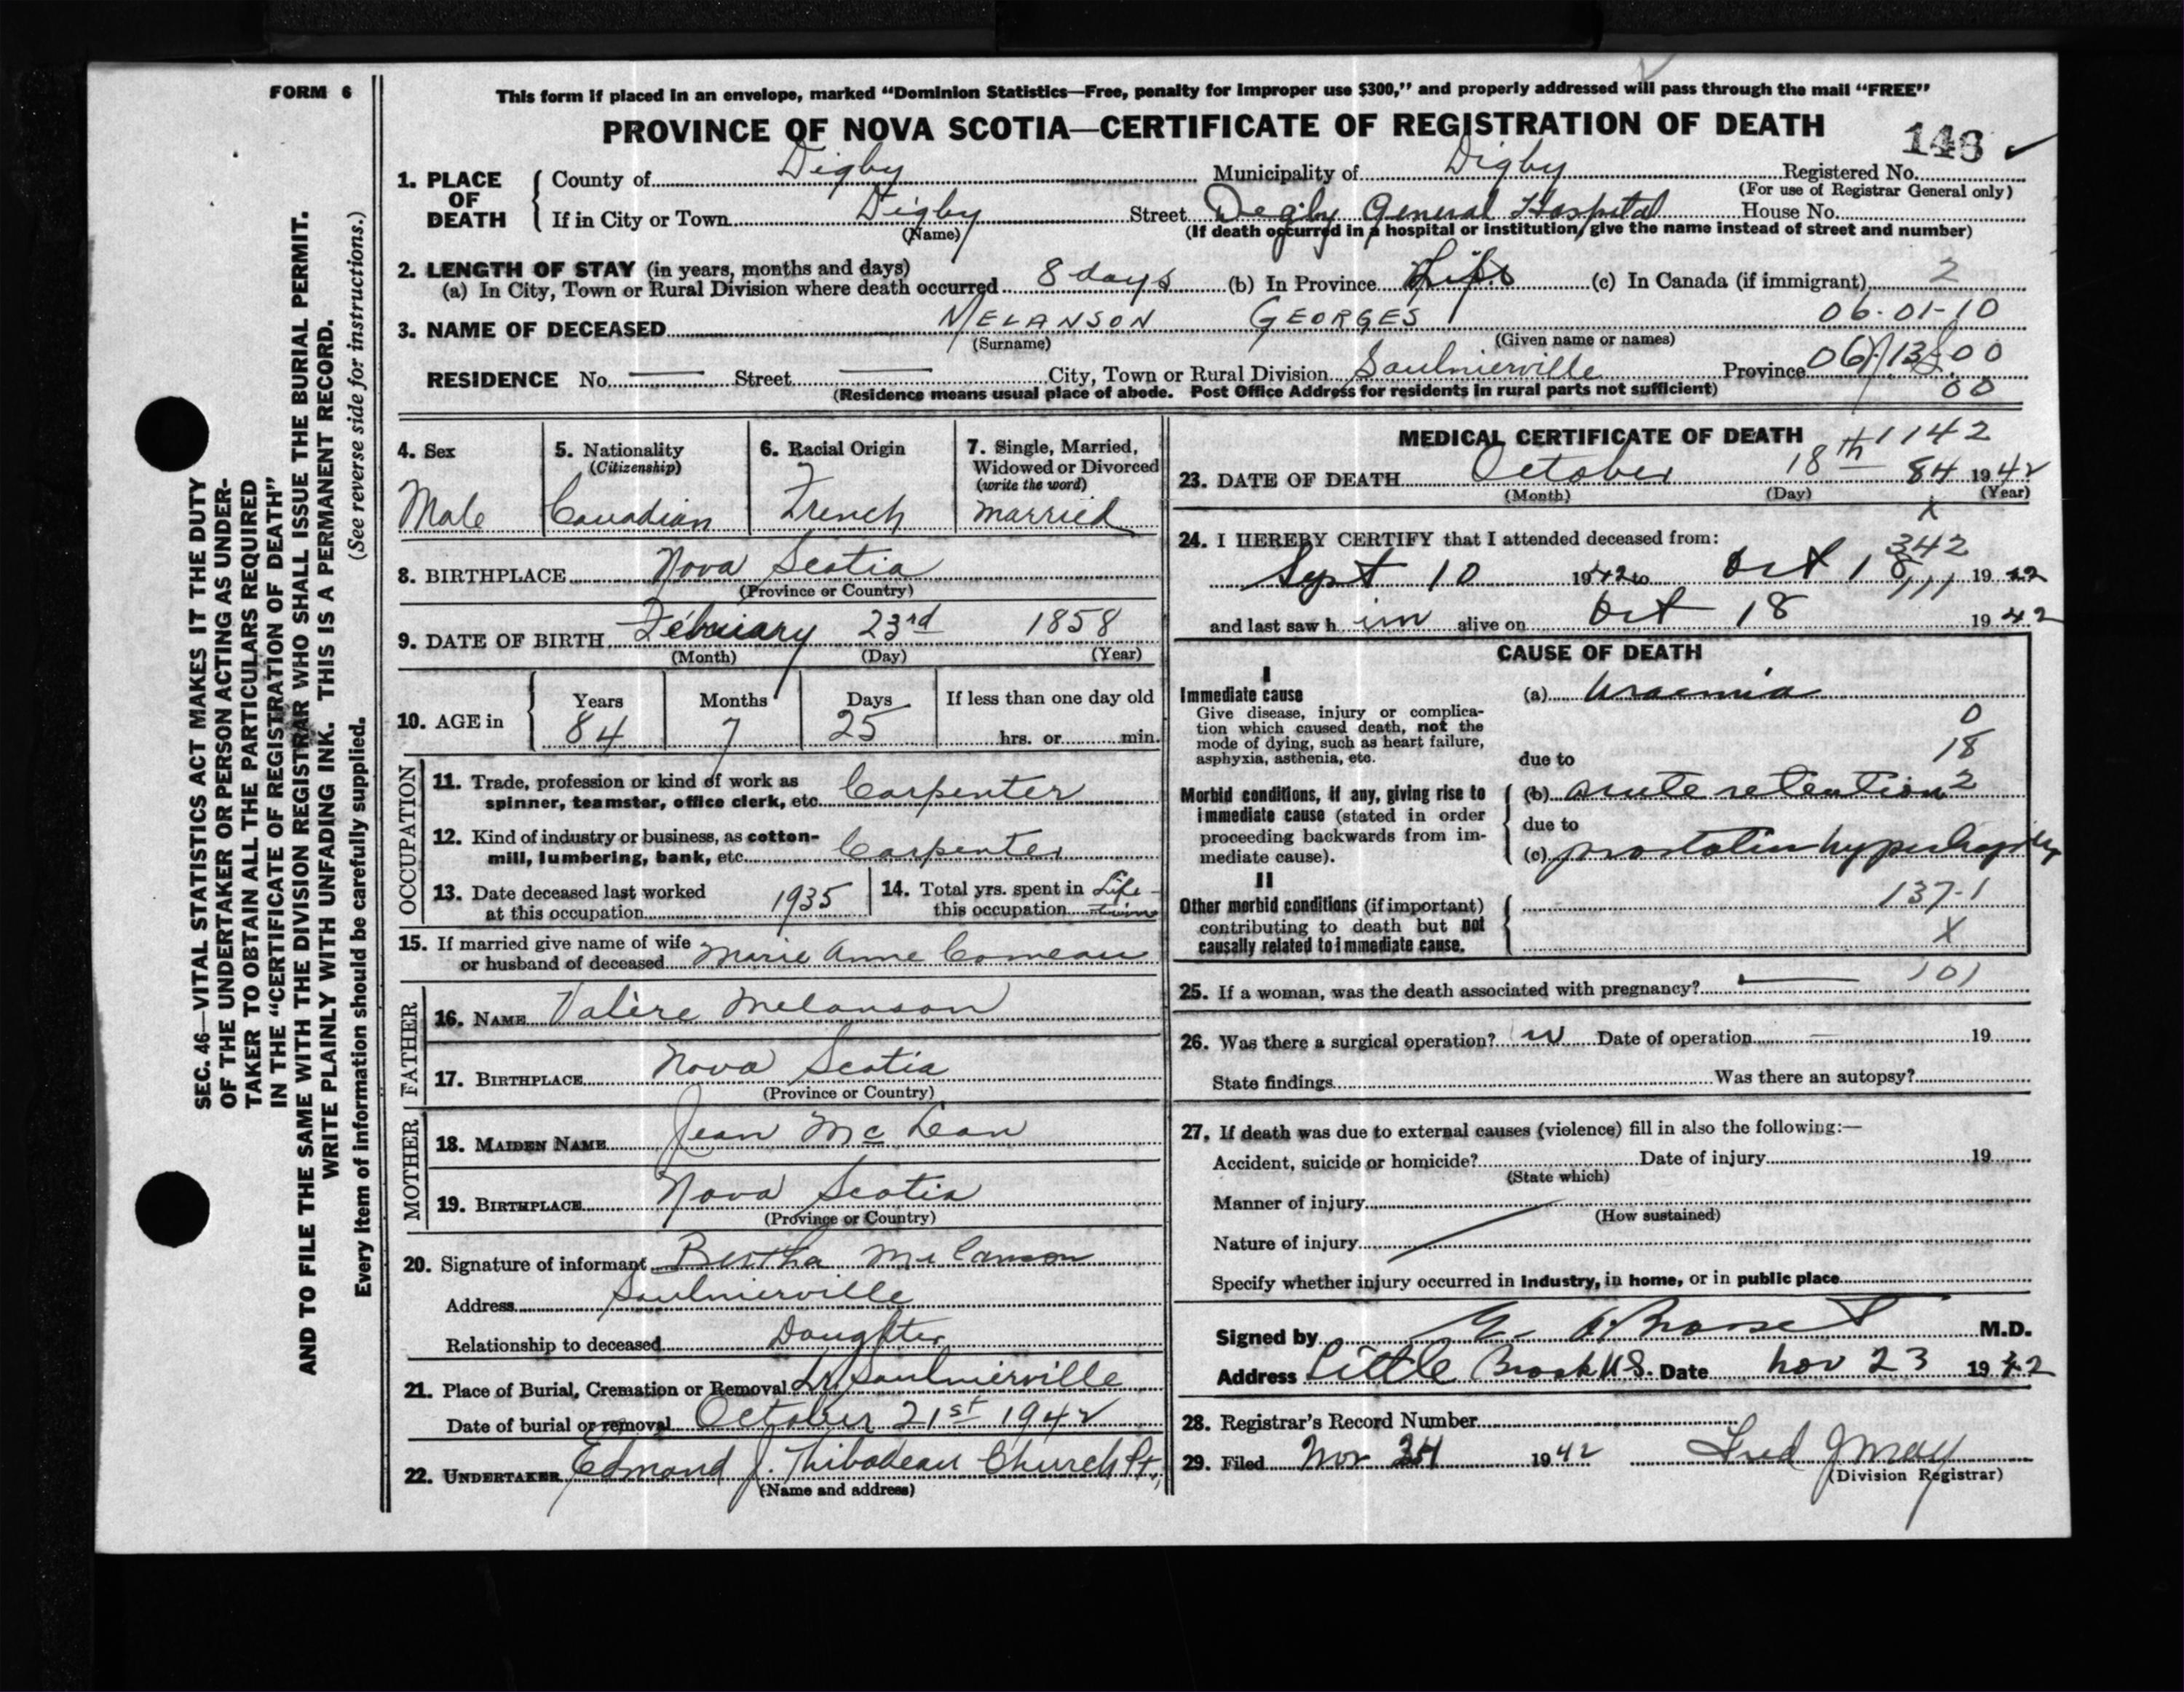 FORM 6
This form if placed in an envelope, marked “Dominion Statistics—Free, penalty for improper use $300,” and properly addressed will pass through the mail “FREE”
PROVINCE OF NOVA SCOTIA—CERTIFICATE OF REGISTRATION OF DEATH
148 ✓
1. PLACE OF DEATH
County of Digby Municipality of Digby Registered No.
(For use of Registrar General only)
If in City or Town Digby Street Degby General Hospital House No.
(Name) (If death occurred in a hospital or institution, give the name instead of street and number)
2. LENGTH OF STAY (in years, months and days)
(a) In City, Town or Rural Division where death occurred 8 days (b) In Province Life (c) In Canada (if immigrant) 2
3. NAME OF DECEASED MELANSON GEORGES 06-01-10
(Surname) (Given name or names)
RESIDENCE No. — Street — City, Town or Rural Division Saulnierville Province N.S. 06-13-00
00
(Residence means usual place of abode. Post Office Address for residents in rural parts not sufficient)
4. Sex
Male
5. Nationality
(Citizenship)
Canadian
6. Racial Origin
French
7. Single, Married,
Widowed or Divorced
(write the word)
married
8. BIRTHPLACE Nova Scotia
(Province or Country)
9. DATE OF BIRTH February 23rd 1858
(Month) (Day) (Year)
10. AGE in
Years Months Days If less than one day old
84 7 25 hrs. or min.
OCCUPATION
11. Trade, profession or kind of work as
spinner, teamster, office clerk, etc. Carpenter
12. Kind of industry or business, as cotton-
mill, lumbering, bank, etc. Carpenter
13. Date deceased last worked
at this occupation 1935
14. Total yrs. spent in Life-
this occupation time
15. If married give name of wife
or husband of deceased Marie Anne Comeau
FATHER
16. NAME Valère Melanson
17. BIRTHPLACE Nova Scotia
(Province or Country)
MOTHER
18. MAIDEN NAME Jean Mc Lean
19. BIRTHPLACE Nova Scotia
(Province or Country)
20. Signature of informant Bertha Melanson
Address Saulnierville
Relationship to deceased Daughter
21. Place of Burial, Cremation or Removal Lr Saulnierville
Date of burial or removal October 21st 1942
22. UNDERTAKER Edmond J. Thibodeau Church Pt.,
(Name and address)
MEDICAL CERTIFICATE OF DEATH 1142
23. DATE OF DEATH October 18th 84 1942
(Month) (Day) (Year)
X
24. I HEREBY CERTIFY that I attended deceased from:
342
Sept 10 1942 to Oct 18 1942
111
and last saw h im alive on Oct 18 1942
CAUSE OF DEATH
I
Immediate cause
Give disease, injury or complica-
tion which caused death, not the
mode of dying, such as heart failure,
asphyxia, asthenia, etc.
(a) Uraemia
0
18
due to
Morbid conditions, if any, giving rise to
immediate cause (stated in order
proceeding backwards from im-
mediate cause).
(b) acute retention 2
due to
(c) prostatic hypertrophy
II
Other morbid conditions (if important)
contributing to death but not
causally related to immediate cause.
137-1
X
25. If a woman, was the death associated with pregnancy? — 101
26. Was there a surgical operation? Date of operation — 19
State findings Was there an autopsy?
27. If death was due to external causes (violence) fill in also the following:—
Accident, suicide or homicide? Date of injury 19
(State which)
Manner of injury
(How sustained)
Nature of injury
Specify whether injury occurred in industry, in home, or in public place
Signed by M.D.
Address Little Brook N.S. Date Nov 23 1942
28. Registrar's Record Number
29. Filed Nov 24 1942 Fred J May
(Division Registrar)
SEC. 46—VITAL STATISTICS ACT MAKES IT THE DUTY
OF THE UNDERTAKER OR PERSON ACTING AS UNDER-
TAKER TO OBTAIN ALL THE PARTICULARS REQUIRED
IN THE “CERTIFICATE OF REGISTRATION OF DEATH”
AND TO FILE THE SAME WITH THE DIVISION REGISTRAR WHO SHALL ISSUE THE BURIAL PERMIT.
WRITE PLAINLY WITH UNFADING INK. THIS IS A PERMANENT RECORD.
Every item of information should be carefully supplied. (See reverse side for instructions.)